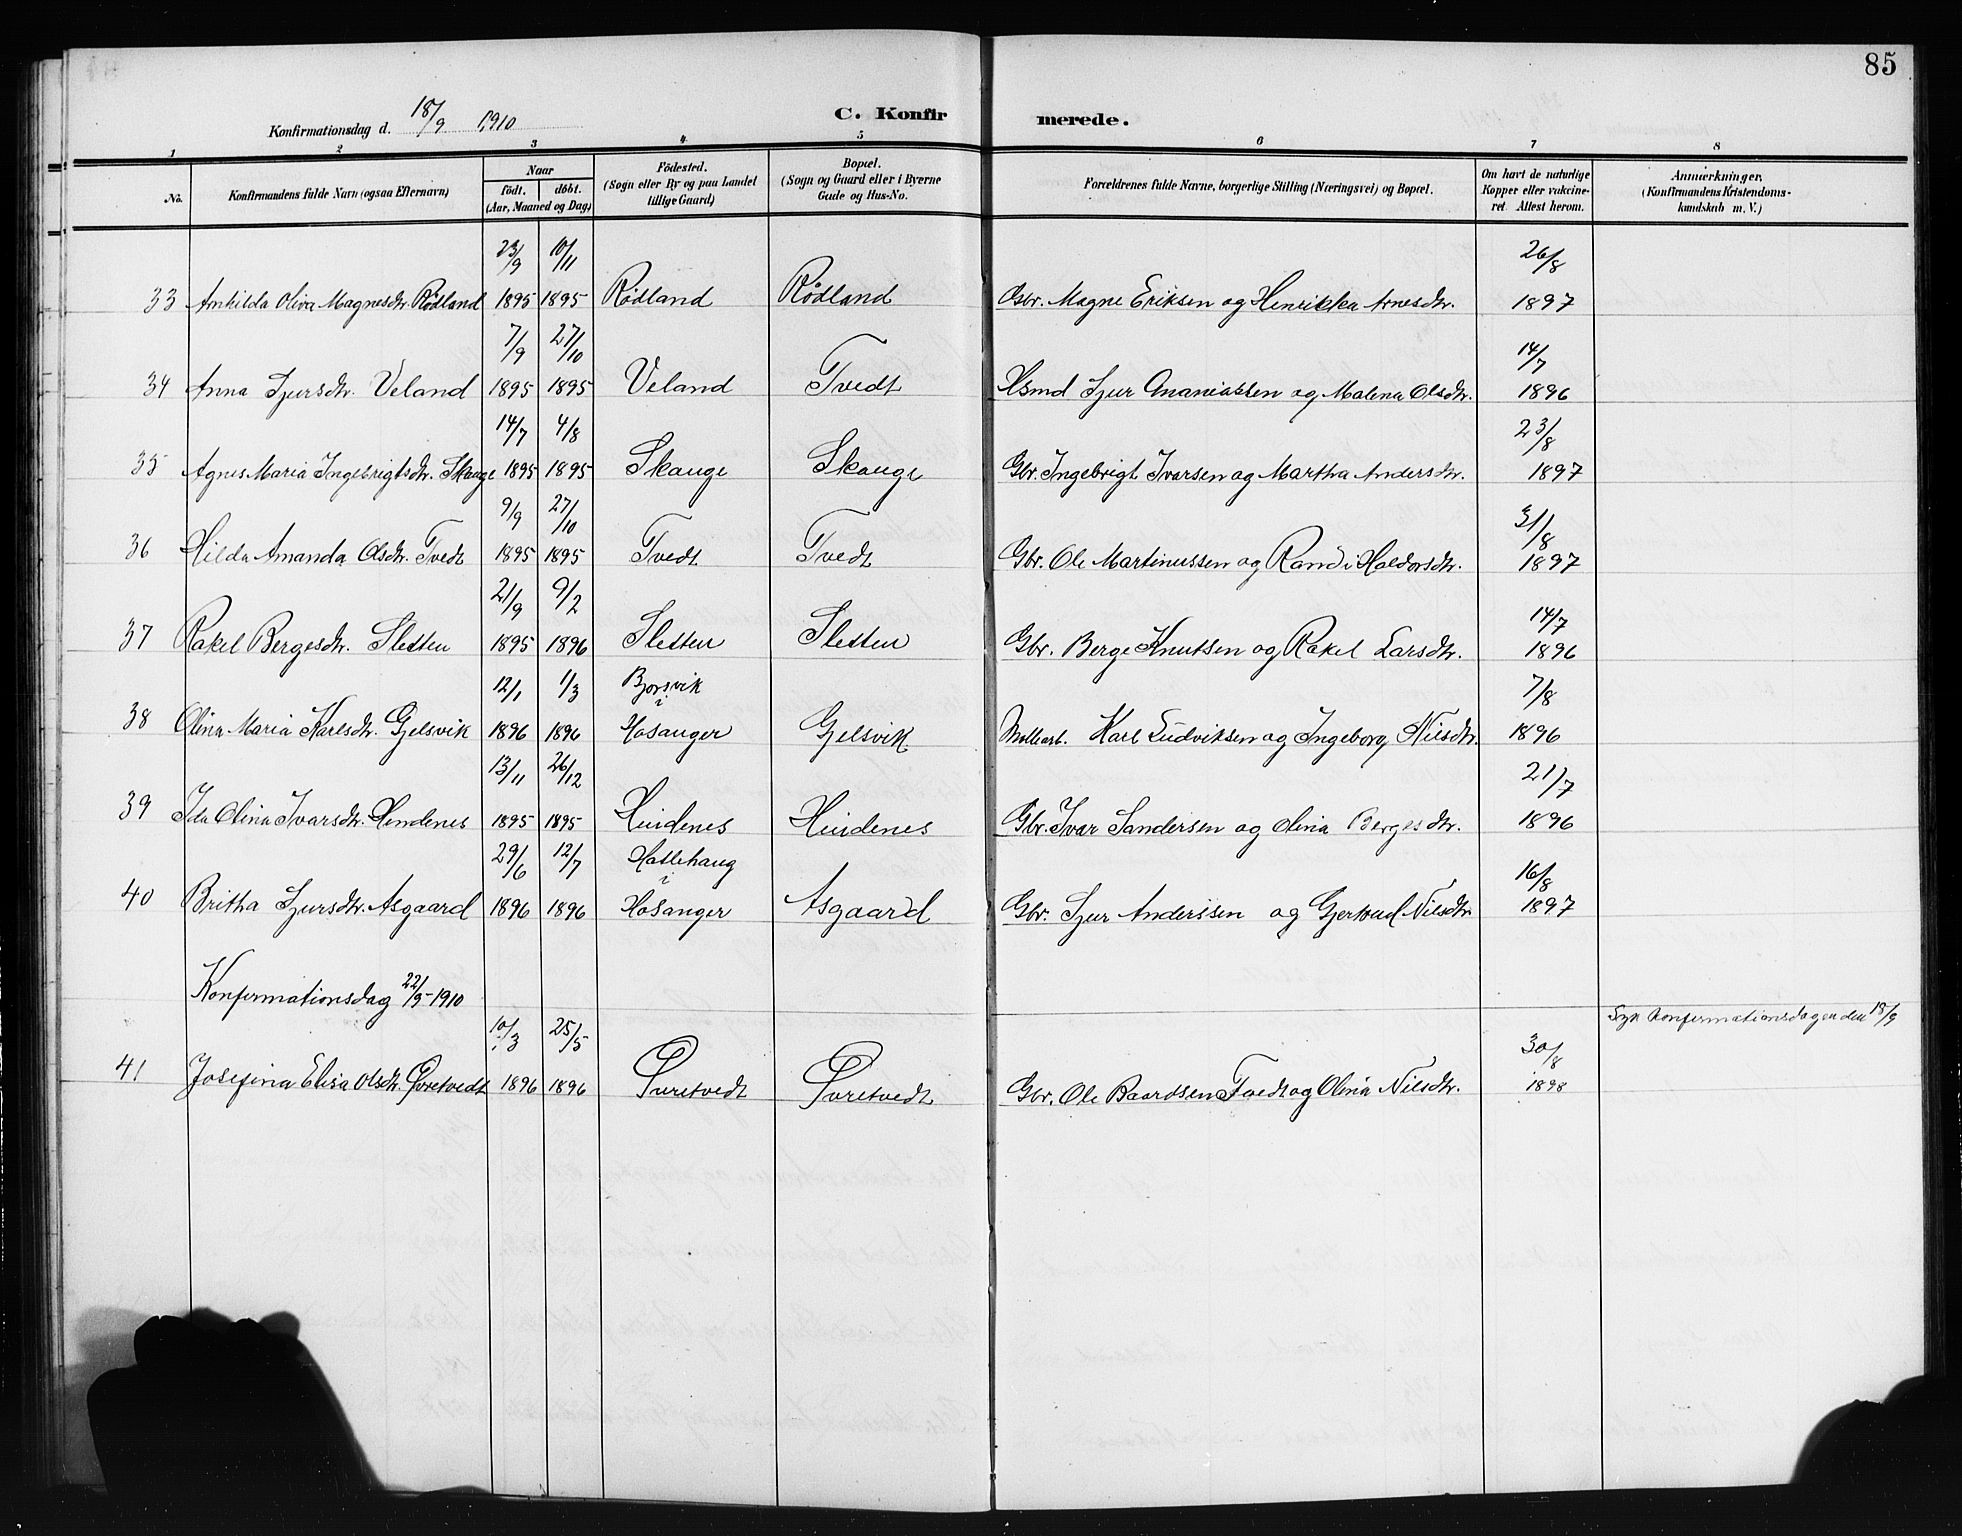 85
Konfirmationsdag d. 18/9 1910
C. Konfir merede.
1 2 3 4 5 6 7 8
No. Konfirmandens fulde Navn (ogsaa Efternavn) Naar født, døbt. (Aar, Maaned og Dag) Födested. (Sogn eller By og paa Landet tillige Gaard) Bopæl. (Sogn og Gaard eller i Byerne Gade og Hus-No. Forældrenes fulde Navne, borgerlige Stilling (Næringsvei) og Bopæl. Om havt de naturlige Kopper eller vakcineret. Attest herom. Anmærkninger, (Konfirmandens Kristendomskundskab m. V.)
23/9 10/11 26/8
33 Ankilda Oliva Magnesdtr. Rødland 1895 1895 Rødland Rødland Gbr. Magne Eriksen og Henrikka Arnesdtr. 1897
7/9 27/10 14/7
34 Anna Sjursdtr. Veland 1895 1895 Veland Tvedt Hsmd Sjur Ananiassen og Malena Olsdtr. 1896
14/7 4/8 23/8
35 Agnes Maria Ingebrigtsdtr. Skauge 1895 1895 Skauge Skauge Gbr. Ingebrigt Ivarsen og Martha Andersdtr. 1897
9/9 27/10 31/8
36 Hilda Amanda Olsdtr. Tvedt 1895 1895 Tvedt Tvedt Gbr. Ole Martinussen og Randi Haldorsdtr. 1897
21/9 9/2 14/7
37 Rakel Bergesdtr. Sletten 1895 1896 Sletten Sletten Gbr. Berge Knutsen og Rakel Larsdtr. 1896
12/1 1/3 Bjorsvik i 7/8
38 Olina Maria Karlsdtr. Gjelsvik 1896 1896 Hosanger Gjelsvik Møllearb. Karl Ludviksen og Ingeborg Nilsdtr. 1896
13/11 26/12 21/7
39 Ida Olina Ivarsdtr. Hindenes 1895 1895 Hindenes Hindenes Gbr. Ivar Sandersen og Olina Bergesdtr. 1896
29/6 12/7 Hatlehaug i 16/8
40 Britha Sjursdtr. Asgaard 1896 1896 Hosanger Asgaard Gbr. Sjur Anderssen og Gjertrud Nilsdtr 1897
Konfirmationsdag 22/9-1910
10/3 25/5 30/8 Syk Konfirmationsdagen den 18/9
41 Josefina Elisa Olsdtr. Øvretvedt 1896 1896 Øvretvedt Øvretvedt Gbr. Ole Baardsen Tvedt og Olina Nilsdtr. 1898